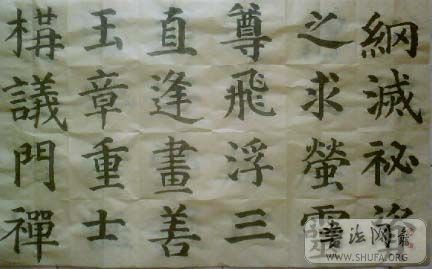 綱滅祕
之求螢
尊飛浮三
直逢畫善
玉章重士
構議門禪
书法网
WWW.SHUFA.ORG